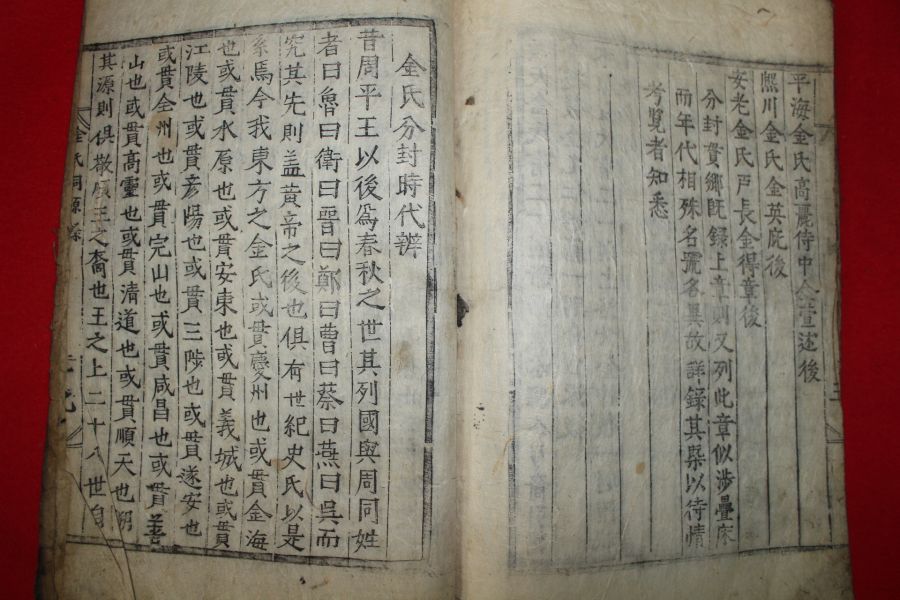 平海金氏高麗侍中金萱述後
熈川金氏金英庇後
安老金氏戸長金得章後
分封貫鄉既録上章則又列此章似涉疊床
而年代相殊名號各異故詳録其槩以待情
考覧者知悉
金氏分封時代辨
昔周平王以後爲春秋之世其列國與周同姓
者曰魯曰衛曰晋曰鄭曰曹曰蔡曰燕曰吳而
究其先則盖黄帝之後也俱有世紀史氏以是
系焉今我東方之金氏或貫慶州也或貫金海
也或貫水原也或貫安東也或貫義城也或貫
江陵也或貫彦陽也或貫三陟也或貫遂安也
或貫全州也或貫完山也或貫咸昌也或貫善
山也或貫高靈也或貫清道也或貫順天也朔
其源則俱敬順王之裔也王之上二十八世自
金氏同源錄